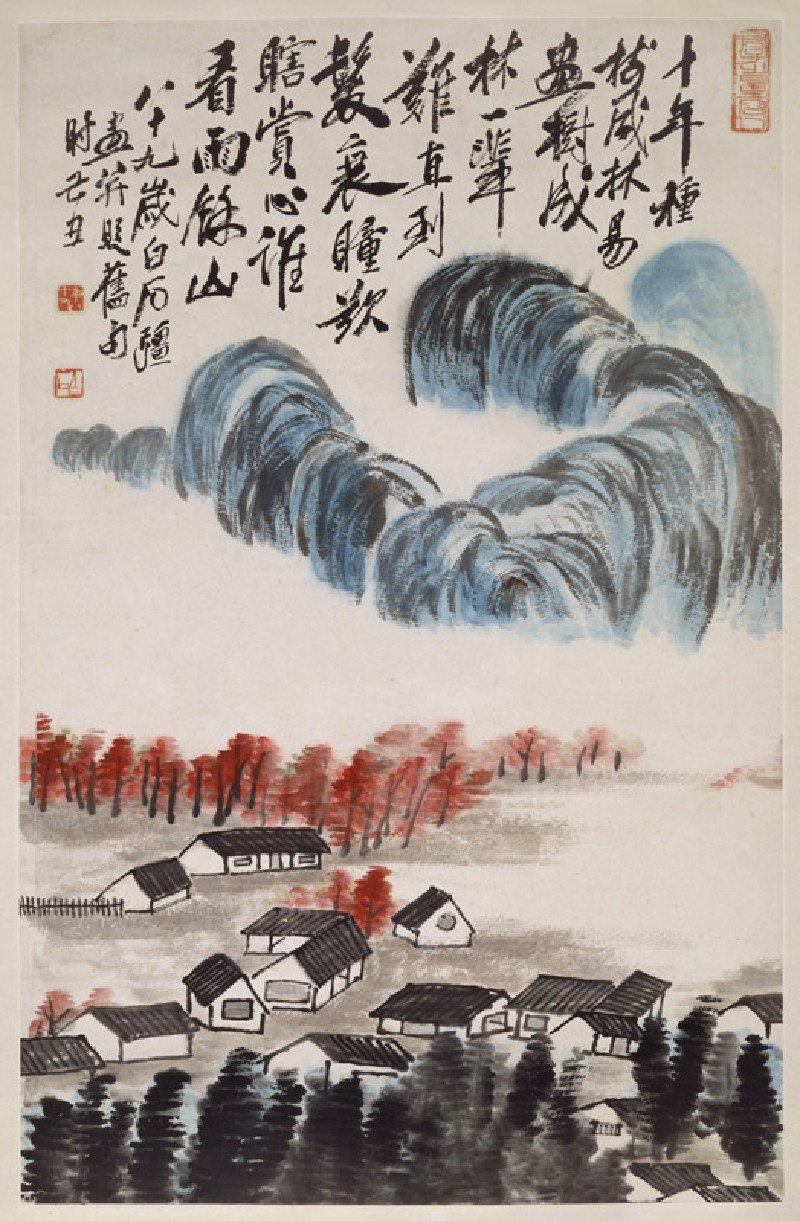 十年種
樹成林易
畫樹成
林一輩
難直到
髮衰瞳欲
瞎賞心誰
看雨餘山
八十九歲白石彊
畫并題舊句
時己丑